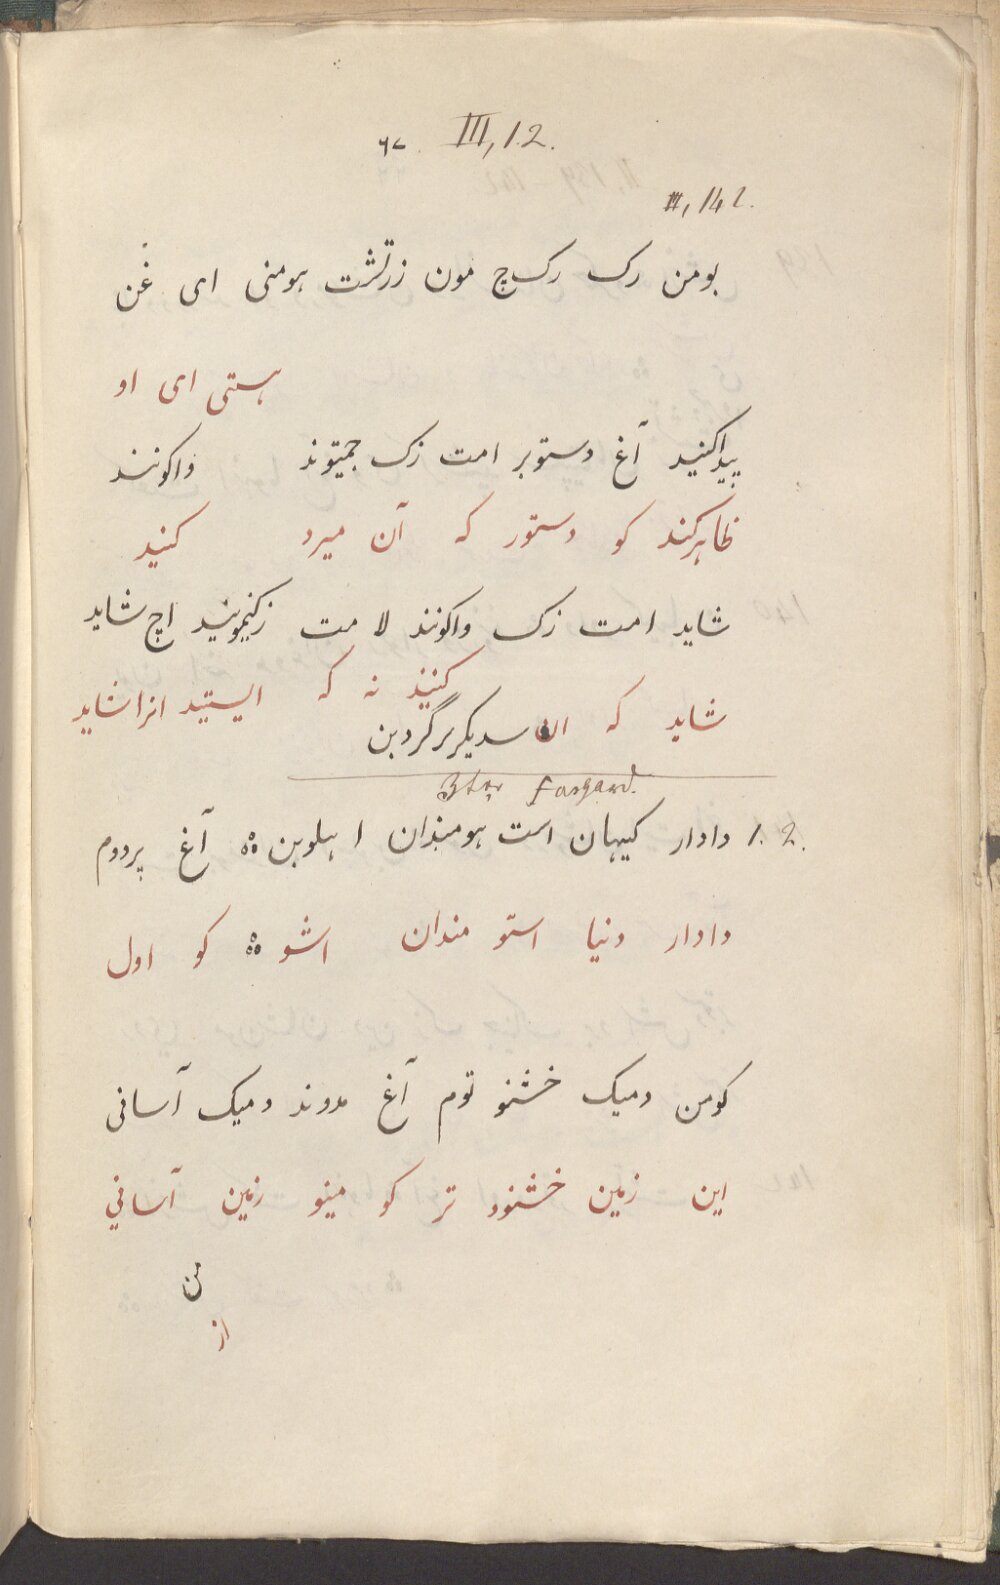 ٦٧ III, 1.2.
II, 142.
بومن رک رک‌چ مون زرتشت هومنی ای
هستی ای او
پیداکنید آغ دستوبر امت زک جمیتوند واکونند
ظاهرکند کو دستور که آن میرد کنید
شاید امت زک واکونند لا مت زکنیمونید اچ شاید
شاید که ان کنند نه که ایستید انرا شاید
سدیکر برگردبن
3ter Fargard.
1. 2. دادار کیهان است هومندان اهلوبن ؞ آغ پردوم
دادار دنیا استو مندان اشو ؞ کو اول
کومن دمیک خشنو توم آغ مدوند دمیک آسانی
این زمین خشنود تر کو مینو زمین آسانی
من
از